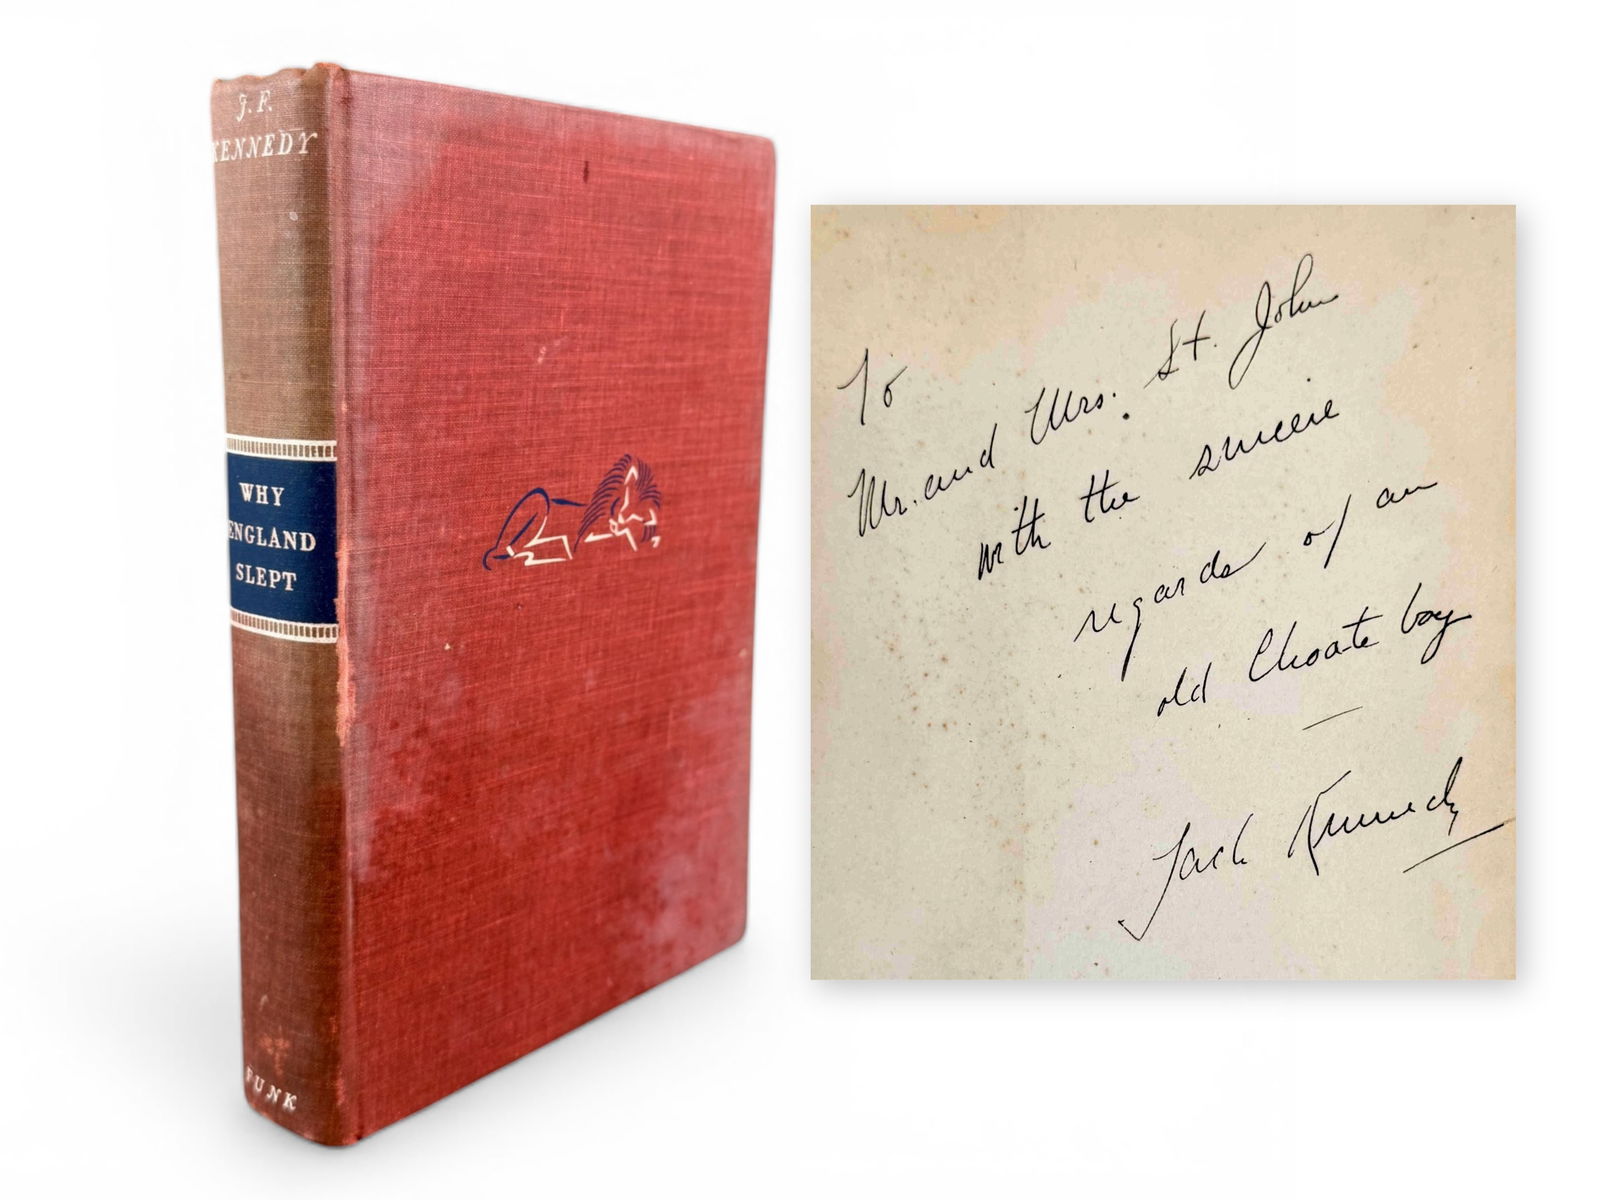 J. F.
KENNEDY
WHY
ENGLAND
SLEPT
FUNK
To
Mr. and Mrs. St. John
with the sincere
regards of an
old Choate boy
Jack Kennedy